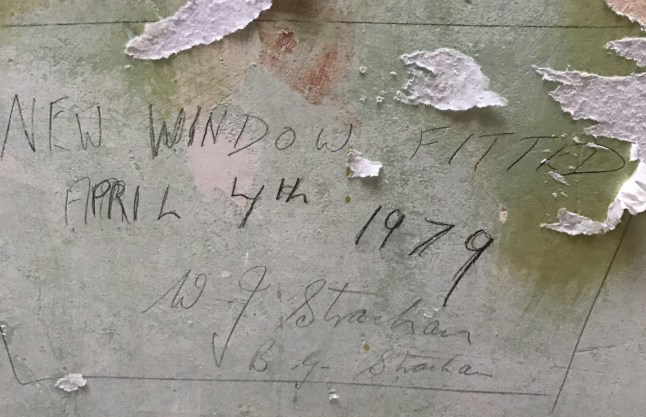 NEW WINDOW FITTED
APRIL 4th 1979
W J Strachan
B. G. Strachan